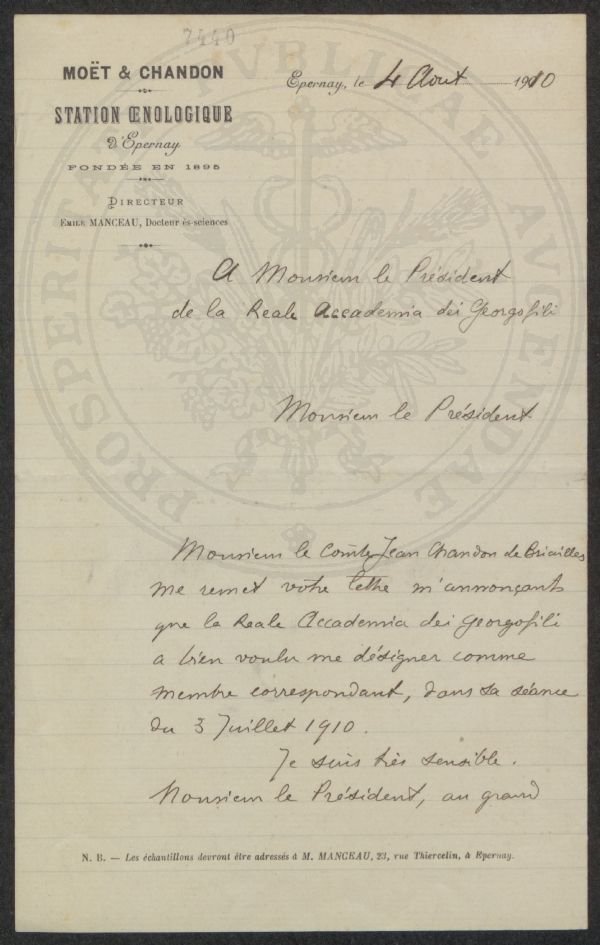 7440
MOËT & CHANDON
STATION ŒNOLOGIQUE
d'Epernay
FONDÉE EN 1895
DIRECTEUR
EMILE MANCEAU, Docteur ès-sciences
Epernay, le 4 Aout 1910
PROSPERITATI PVBLICAE AVGENDAE
A Monsieur le Président
de la Reale Accademia dei Georgofili
Monsieur le Président
Monsieur le Comte Jean Chandon de Briailles
me remet votre lettre m'annonçant
que la Reale Accademia dei Georgofili
a bien voulu me désigner comme
membre correspondant, dans sa séance
du 3 Juillet 1910.
Je suis très sensible.
Monsieur le Président, au grand
N. B. — Les échantillons devront être adressés à M. MANCEAU, 23, rue Thiercelin, à Epernay.